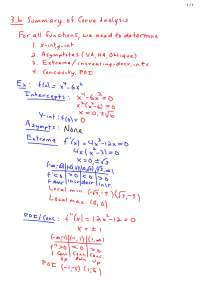 1/1
3.6 Summary of Curve Analysis
For all functions, we need to determine
1. x-int, y-int
2. Asymptotes (VA, HA, Oblique)
3. Extrema / increasing-decr. ints
4. Concavity, POI
Ex: f(x) = x⁴-6x²
Intercepts: x⁴-6x²=0
x²(x²-6)=0
x=0, ±√6
Y-int: f(0)=0
Asympts: None
Extrema f'(x)=4x³-12x=0
4x(x²-3)=0
x=0, ±√3
f'<0 >0 <0 >0
Local min (-√3,-9) (√3,-9)
Local max (0,0)
POI/Conc: f''(x)=12x²-12=0
x=±1
f''>0 <0 >0
Conc Conc Conc
up down up
POI (-1,-5) (1,-5)